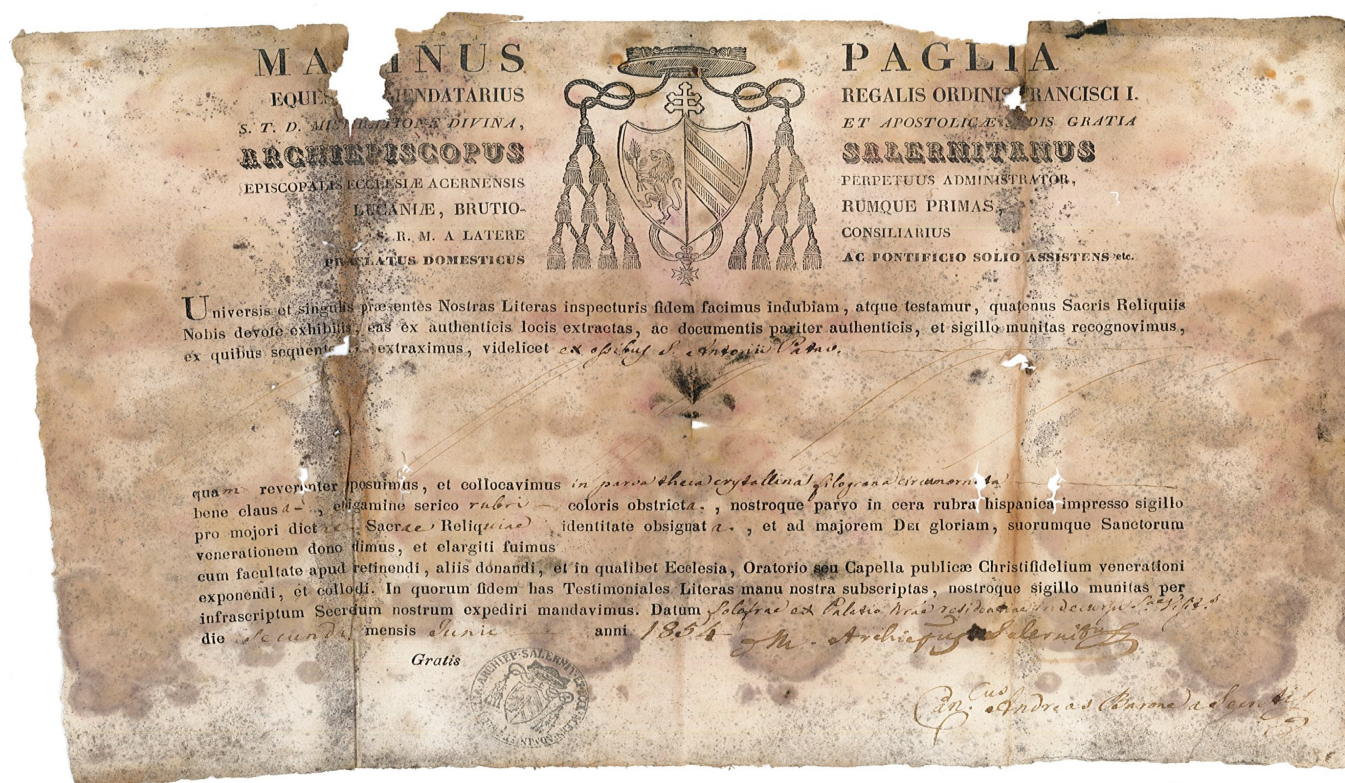 MA INUS PAGLIA
EQUES ENDATARIUS REGALIS ORDINIS FRANCISCI I.
S. T. D. MISERATIONE DIVINA, ET APOSTOLICÆ SEDIS GRATIA
ARCHIEPISCOPUS SALERNITANUS
EPISCOPALIS ECCLESIÆ ACERNENSIS PERPETUUS ADMINISTRATOR,
LUCANIÆ, BRUTIO- RUMQUE PRIMAS,
S. R. M. A LATERE CONSILIARIUS
PRÆLATUS DOMESTICUS AC PONTIFICIO SOLIO ASSISTENS etc.
Universis et singulis præsentes Nostras Literas inspecturis fidem facimus indubiam, atque testamur, quatenus Sacris Reliquiis
Nobis devote exhibitis, eas ex authenticis locis extractas, ac documentis pariter authenticis, et sigillo munitas recognovimus,
ex quibus sequent extraximus, videlicet ex ossibus S. Antonii Patav.
quam reverenter posuimus, et collocavimus in parva theca crystallina filograna circumornata
bene clausa, et ligamine serico rubri coloris obstricta, nostroque parvo in cera rubra hispanica impresso sigillo
pro majori dictae Sacrae Reliquiae identitate obsignata, et ad majorem DEI gloriam, suorumque Sanctorum
venerationem dono dimus, et elargiti fuimus
cum facultate apud retinendi, aliis donandi, et in qualibet Ecclesia, Oratorio seu Capella publicæ Christifidelium venerationi
exponendi, et collodi. In quorum fidem has Testimoniales Literas manu nostra subscriptas, nostroque sigillo munitas per
infrascriptum Secreum nostrum expediri mandavimus. Datum Solofrae ex Palatio
die secunda mensis Junii anni 1854 M. Archiepus Salernitnus
Gratis
Can.cus Andreas Barone a Secretis